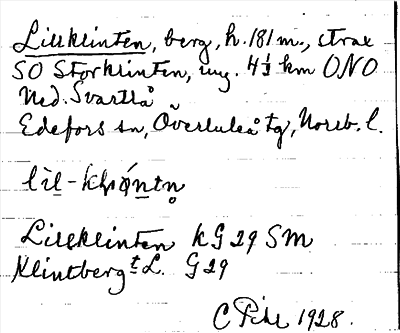 Lillklinten, berg, h. 181 m., strax
SO Storklinten, ung. 4½ km ONO
Ned. Svartlå
Edefors sn, Överluleå tg, Norrb. l.
Lillklinten KG 29 SM
Klintberg t L. G 29
1928.